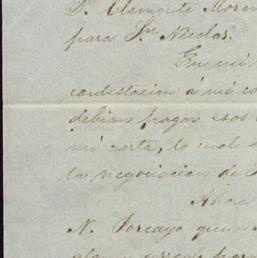 Dn. Clemente Moren
para Sn. Nicolas.
En mi
contestacion á mi co
debian pagar esos
mi carta, lo cual
la negociacion de
Ahora
N. Porcayo que